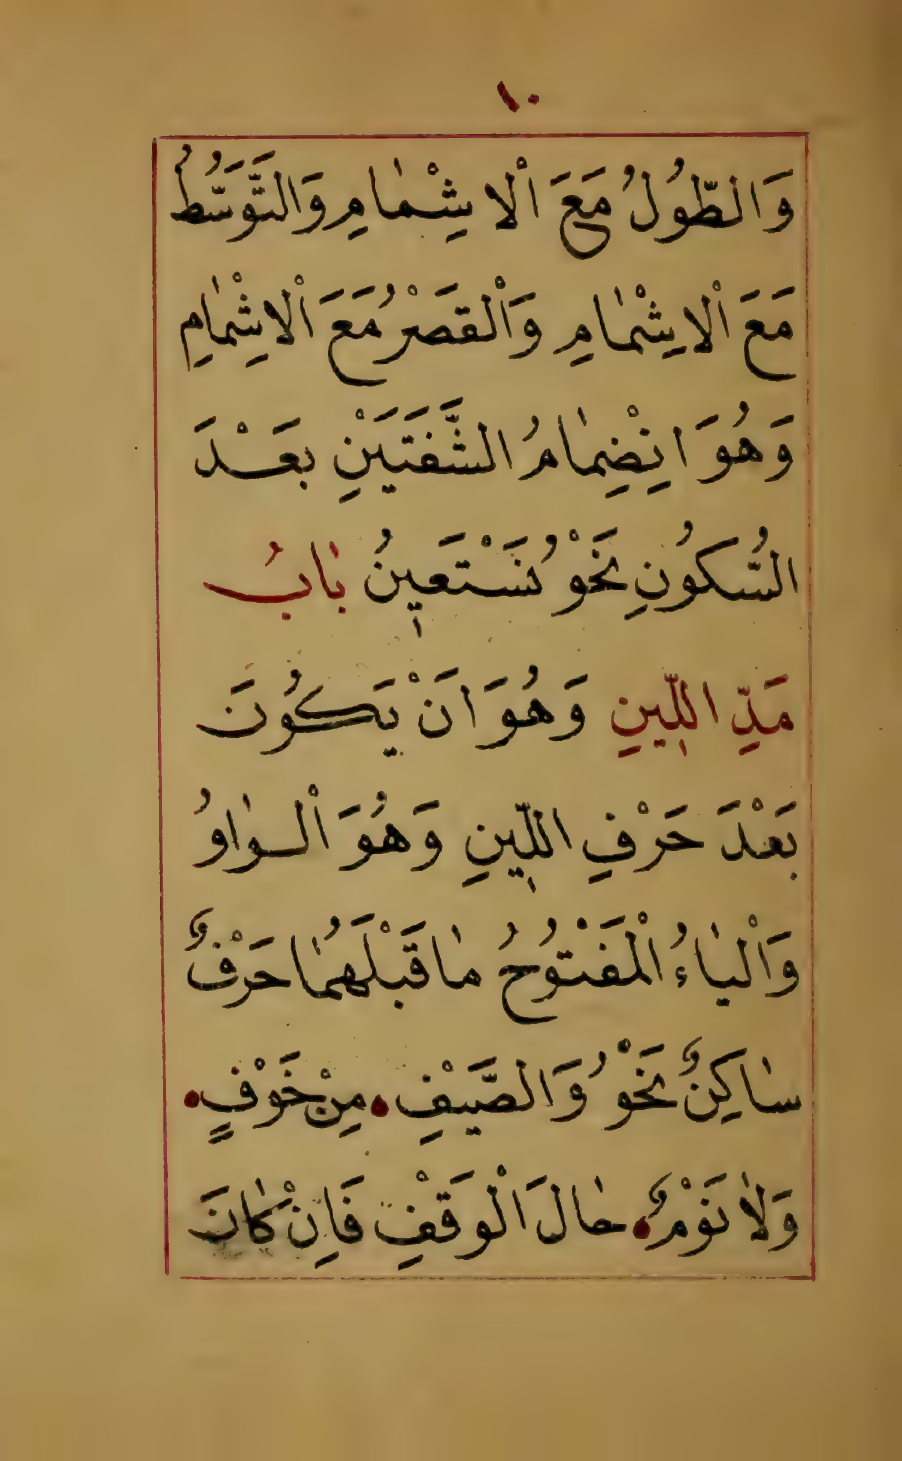 ١٠
وَالطُّولُ مَعَ اْلاِشْمٰامِ وَالتَّوَسُّطُ
مَعَ اْلاِشْمٰامِ وَاْلقَصْرُ مَعَ اْلاِشْمٰامِ
وَهُوَ انْضِمٰامُ الشَّفَتَيْنِ بَعْدَ
السُّكُونِ نَحْوُ نَسْتَعِينُ بٰابُ
مَدِّ اللِّينِ وَهُوَ اَنْ يَكُونَ
بَعْدَ حَرْفِ اللِّينِ وَهُوَ اْلوٰاوُ
وَاْليٰاءُ اْلمَفْتُوحُ مٰا قَبْلَهُمٰا حَرْفٌ
سٰاكِنٌ نَحْوُ وَالصَّيْفِ. مِنْ خَوْفٍ.
وَلاٰ نَوْمٌ. حٰالَ اْلوَقْفِ فَاِنْ كٰانَ